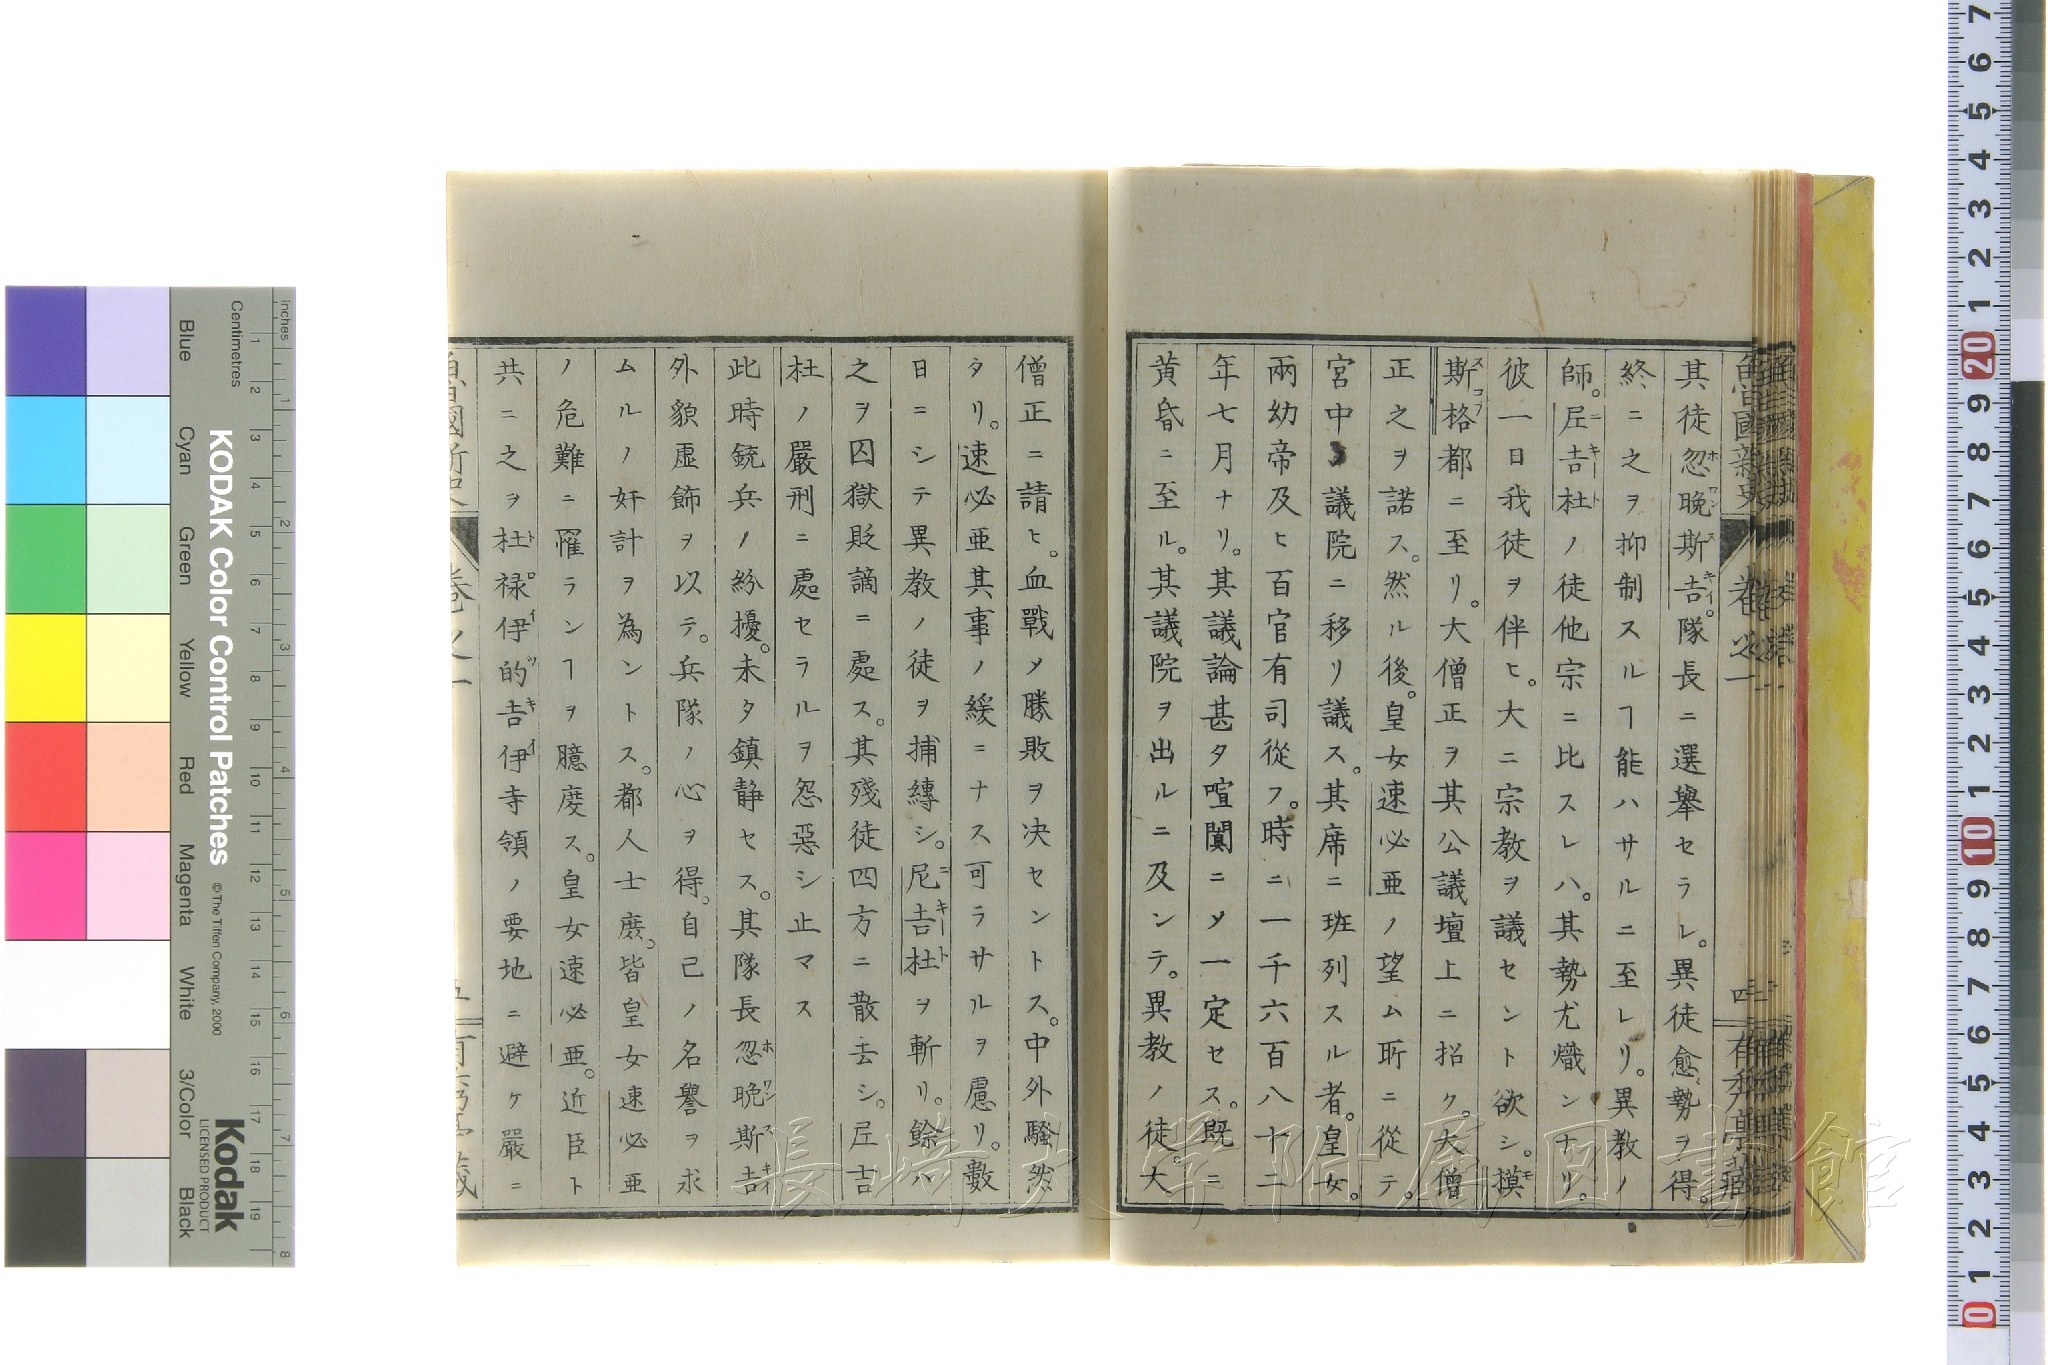 其徒忽晩斯吉。隊長ニ選擧セラレ。異徒愈勢ヲ得。
終ニ之ヲ抑制スルヿ能ハサルニ至レリ。異教ノ
師。尼吉杜ノ徒他宗ニ比スレハ。其勢尤熾ンナリ。
彼一日我徒ヲ伴ヒ。大ニ宗教ヲ議セント欲シ。摸
斯格都ニ至リ。大僧正ヲ其公議壇上ニ招ク。大僧
正之ヲ諾ス。然ル後。皇女速必亜ノ望ム所ニ從テ。
宮中ノ議院ニ移リ議ス。其席ニ班列スル者。皇女。
兩幼帝及ヒ百官有司從フ。時ニ一千六百八十二
年七月ナリ。其議論甚タ喧闐ニメ一定セス。既ニ
黄昏ニ至ル。其議院ヲ出ルニ及ンテ。異教ノ徒。大
僧正ニ請ヒ。血戰メ勝敗ヲ决セントス。中外騷然
タリ。速必亜其事ノ緩ニナス可ラサルヲ慮リ。數
日ニシテ異教ノ徒ヲ捕縛シ。尼吉杜ヲ斬リ。餘ハ
之ヲ囚獄貶謫ニ處ス。其殘徒四方ニ散去シ。尼吉
杜ノ嚴刑ニ處セラルヲ怨惡シ止マス
此時銃兵ノ紛擾。未タ鎮静セス。其隊長忽晩斯吉
外貌虚飾ヲ以テ。兵隊ノ心ヲ得。自己ノ名譽ヲ求
ムルノ奸計ヲ為ントス。都人士庶。皆皇女速必亜
ノ危難ニ罹ランヿヲ臆度ス。皇女速必亜。近臣ト
共ニ之ヲ杜禄伊的吉伊寺領ノ要地ニ避ケ嚴ニ
長崎大学附属図書館
KODAK Color Control Patches
© The Tiffen Company, 2000
Kodak
LICENSED PRODUCT
Inches
Centimetres
Blue
Cyan
Green
Yellow
Red
Magenta
White
3/Color
Black